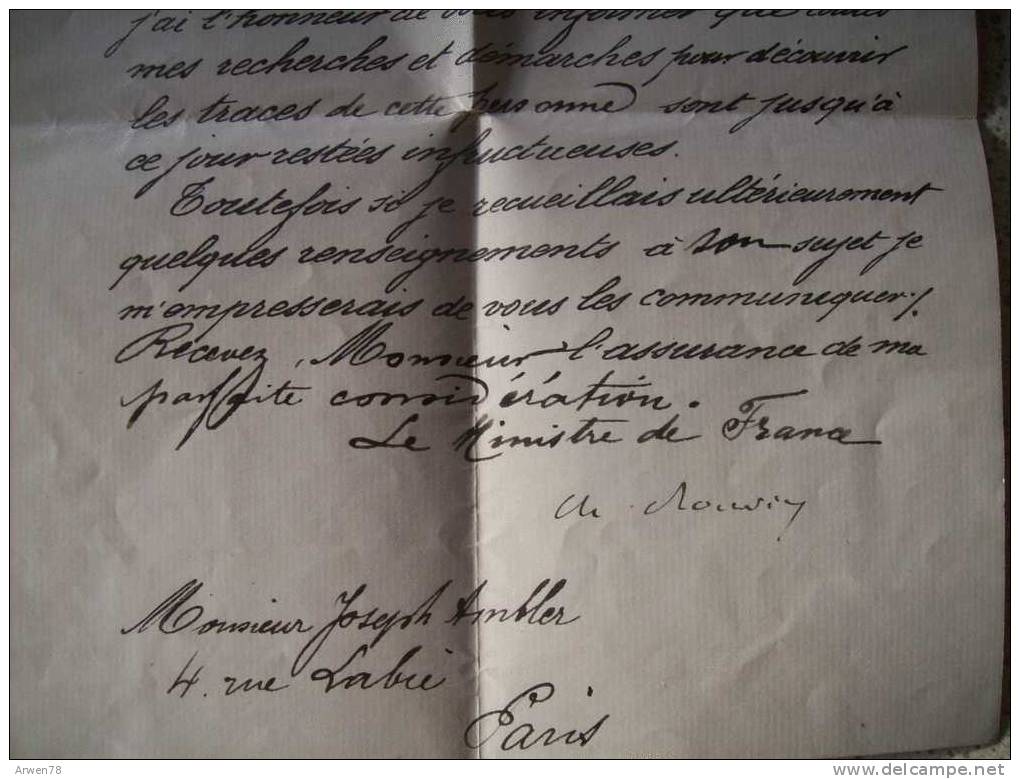 j'ai l'honneur de vous informer que toutes
mes recherches et démarches pour découvrir
les traces de cette personne sont jusqu'à
ce jour restées infructueuses.
Toutefois si je recueillais ultérieurement
quelques renseignements à son sujet je
m'empresserais de vous les communiquer./.
Recevez, Monsieur l'assurance de ma
parfaite considération.
Le Ministre de France
Ch.
Monsieur Joseph Ambler
4. rue Labie
Paris
Arwen78
delcampe.net